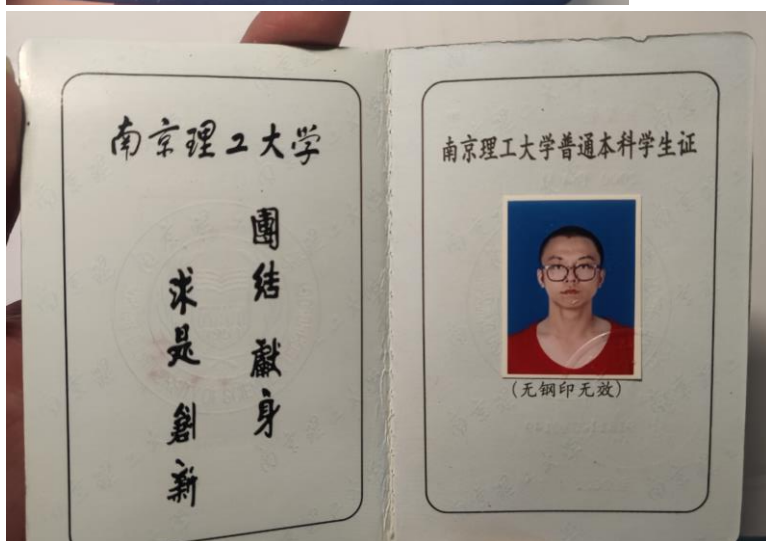 南京理工大学
團結 獻身
求是 創新
南京理工大学普通本科学生证
(无钢印无效)